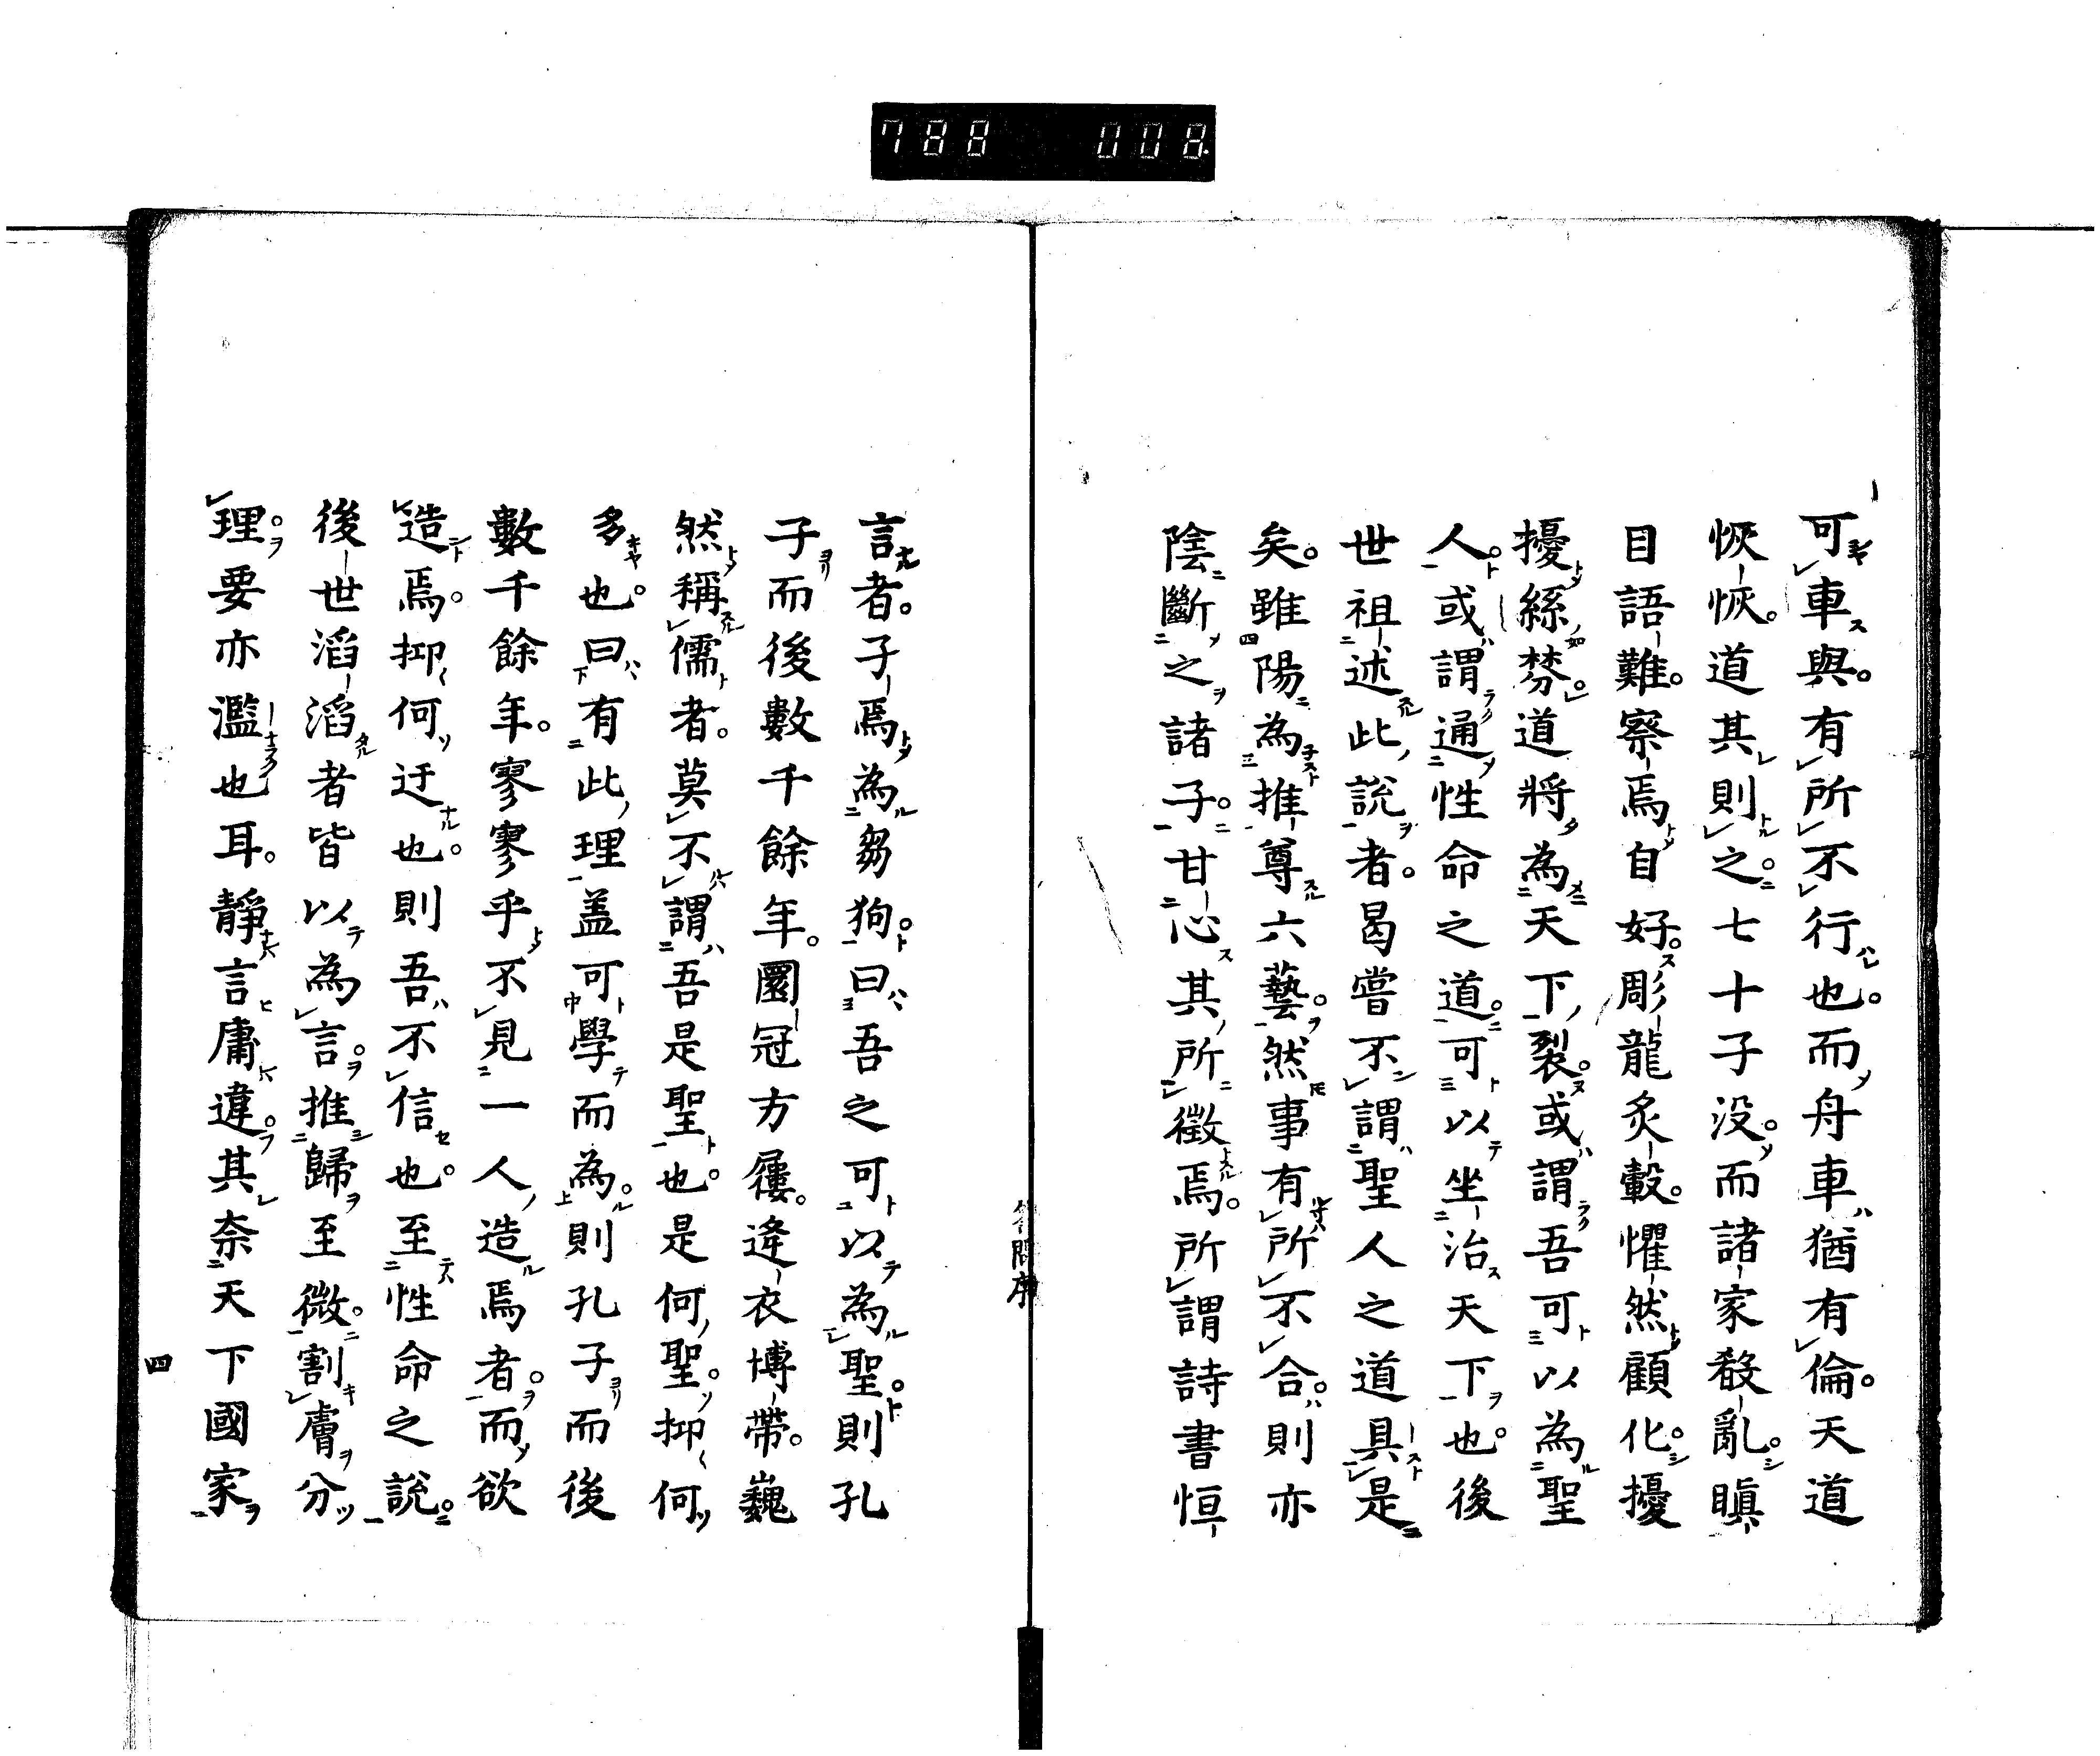 788 008
可車與。有所不行也。而舟車猶有倫。天道
恢恢。道其則之。七十子没。而諸家殽亂。瞋
目語難。察焉自好。彫龍炙轂。懼然顧化。擾
擾絲棼。道將為天下裂。或謂吾可以為聖
人。或謂通性命之道。可以坐治天下也。後
世祖述此說者。曷嘗不謂聖人之道具是
矣。雖陽為推尊六藝。然事有所不合。則亦
陰斷之諸子。甘心其所徵焉。所謂詩書恒
言者。子焉為芻狗。曰吾之可以為聖。則孔
子而後數千餘年。圜冠方屨。逢衣博帶。巍
然稱儒者。莫不謂吾是聖也。是何聖。抑何
多也。曰有此理盖可學而為。則孔子而後
數千餘年。寥寥乎不見一人造焉者。而欲
造焉。抑何迂也。則吾不信也。至性命之說。
後世滔滔者皆以為言。推歸至微。割膚分
理。要亦濫也耳。靜言庸違。其奈天下國家
答問序
四